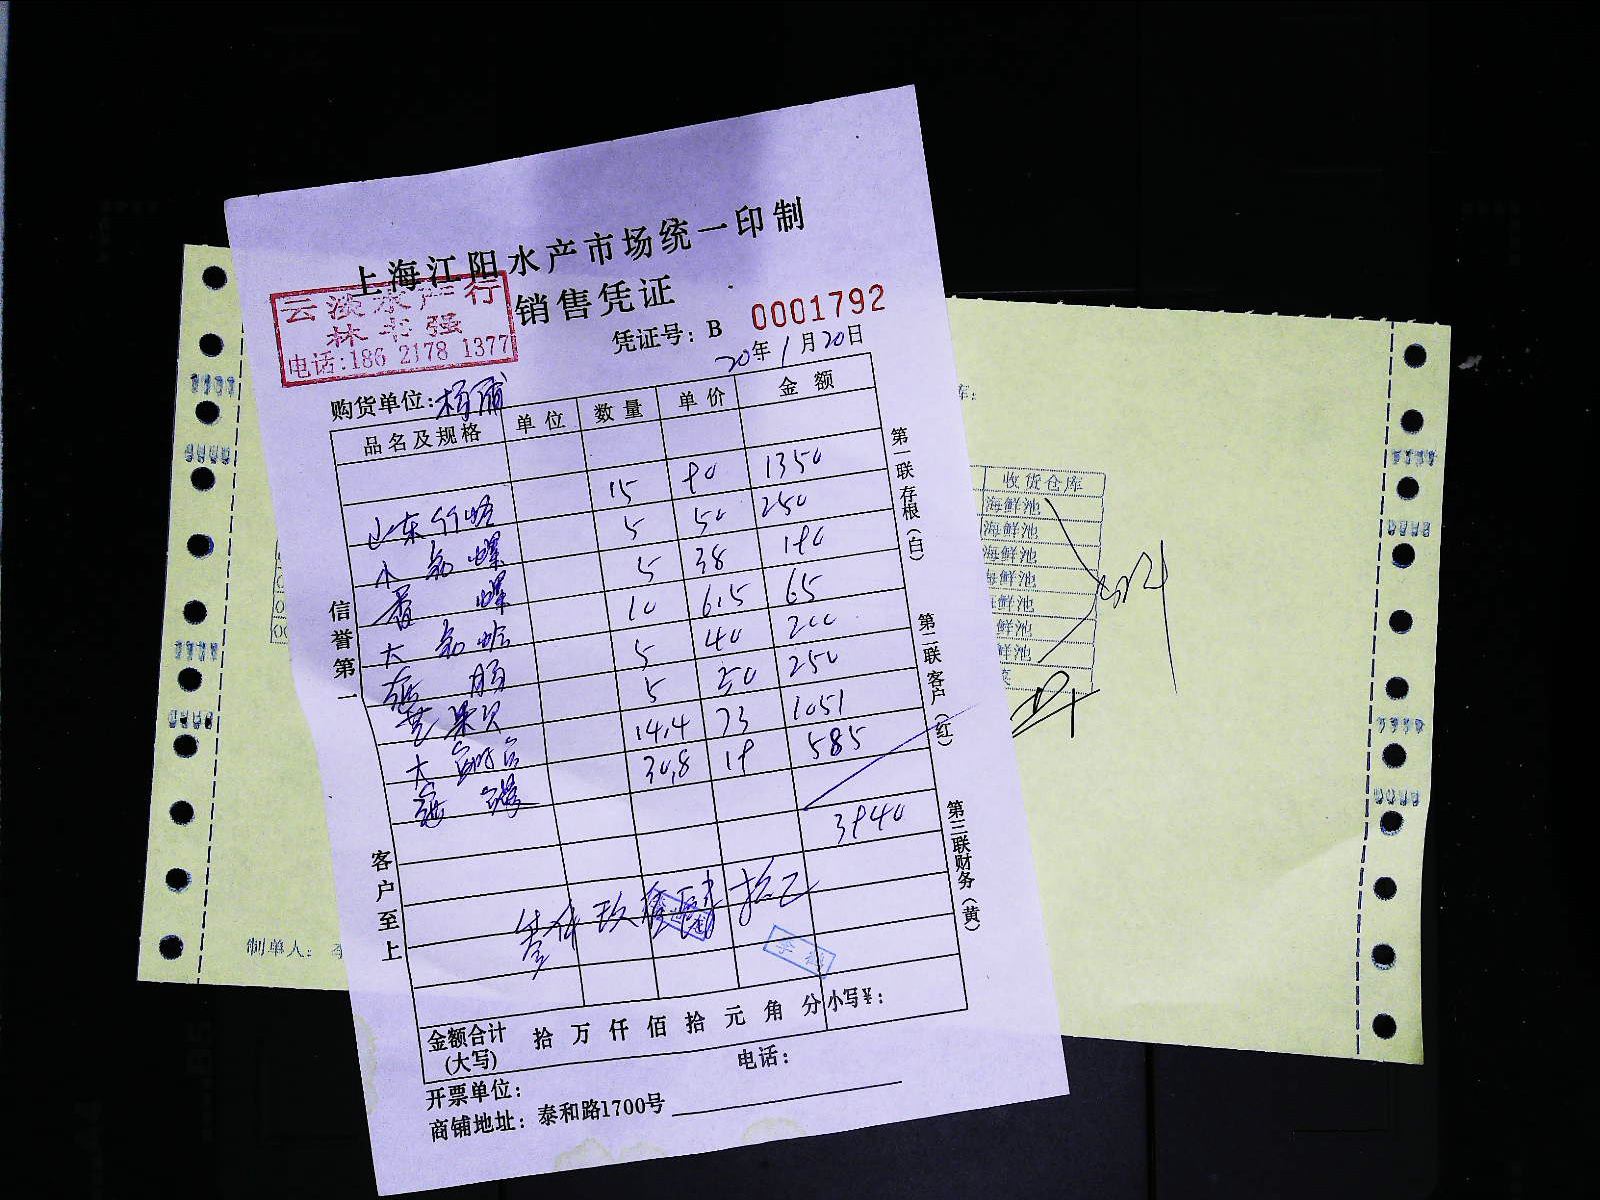 上海江阳水产市场统一印制
销售凭证
云淡水产行
林书强
电话:186 2178 1377
凭证号: B 0001792
20年1月20日
购货单位:杨浦
品名及规格 单位 数量 单价 金额
山东竹蛏 15 90 1350
小 螺 5 50 250
香螺 5 38 190
大 蛤 10 6.5 65
5 40 200
5 50 250
大 14.4 73 1051
30.8 19 585
3940
叁仟玖 拾
李
信誉第一
客户至上
第一联存根(白)
第二联客户(红)
第三联财务(黄)
金额合计(大写) 拾 万 仟 佰 拾 元 角 分 小写¥:
开票单位: 电话:
商铺地址: 泰和路1700号
库:
收货仓库
海鲜池
海鲜池
海鲜池
海鲜池
鲜池
鲜池
鲜池
菜
制单人: 李